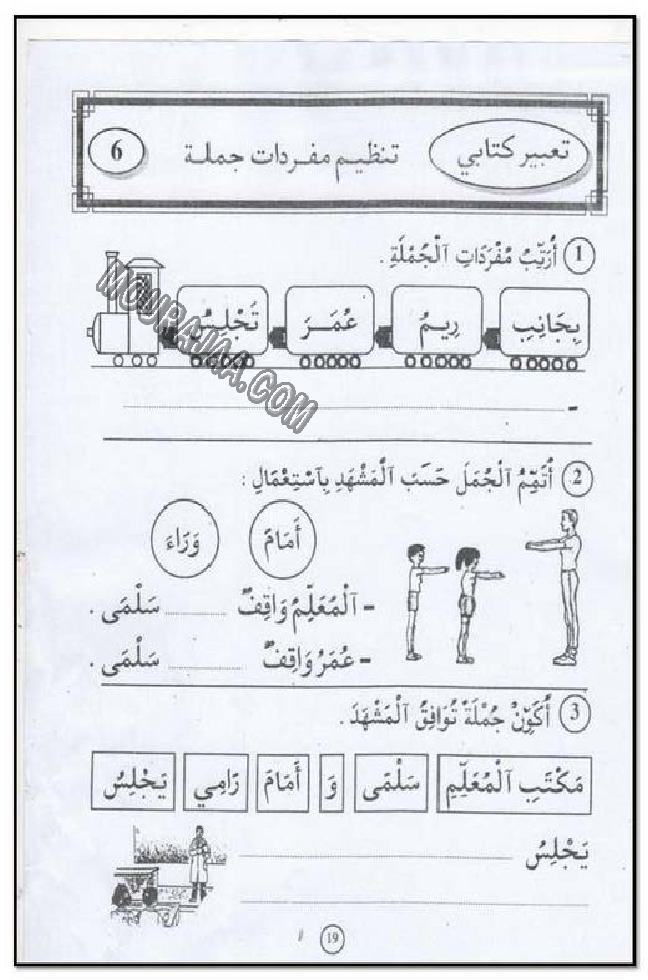 تعبير كتابي تنظيم مفردات جملة 6
1 أُرَتِّبُ مُفْرَدَاتِ ٱلْجُمْلَةِ .
بِجَانِبِ رِيمُ عُمَرَ تَجْلِسُ
MOURAJAA.COM
2 أُتَمِّمُ ٱلْجُمَلَ حَسَبَ ٱلْمَشْهَدِ بِٱسْتِعْمَالِ :
أَمَامَ وَرَاءَ
- ٱلْمُعَلِّمُ وَاقِفٌ ......... سَلْمَى .
- عُمَرُ وَاقِفٌ ......... سَلْمَى .
3 أُكَوِّنُ جُمْلَةً تُوَافِقُ ٱلْمَشْهَدَ .
مَكْتَبِ ٱلْمُعَلِّمِ سَلْمَى وَ أَمَامَ رَامِي يَجْلِسُ
يَجْلِسُ .........
19